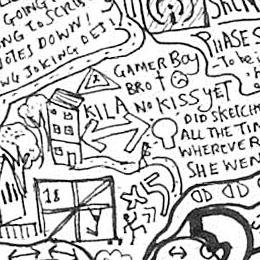 GOING
NG TO SCRIB
NOTES DOWN!
NG JOKING DEJ!
PHASES
To be i
GAMER BOY
BRO
KILA NO KISS YET
DID SKETCH
ALL THE TIM
WHEREVER
SHE WEN
18